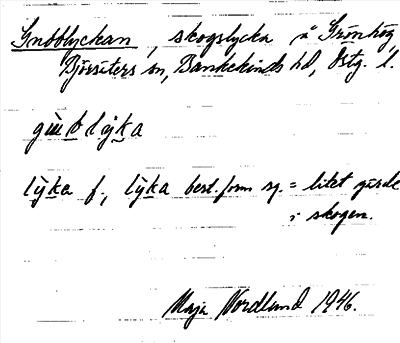 Smörlyckan, skogslycka å Grönhög
Björsäters sn, Bankekinds hd, Östg. l.
lỳka f., lỳka best. form sg. = litet gärde
i skogen.
Maja Nordlund 1946.